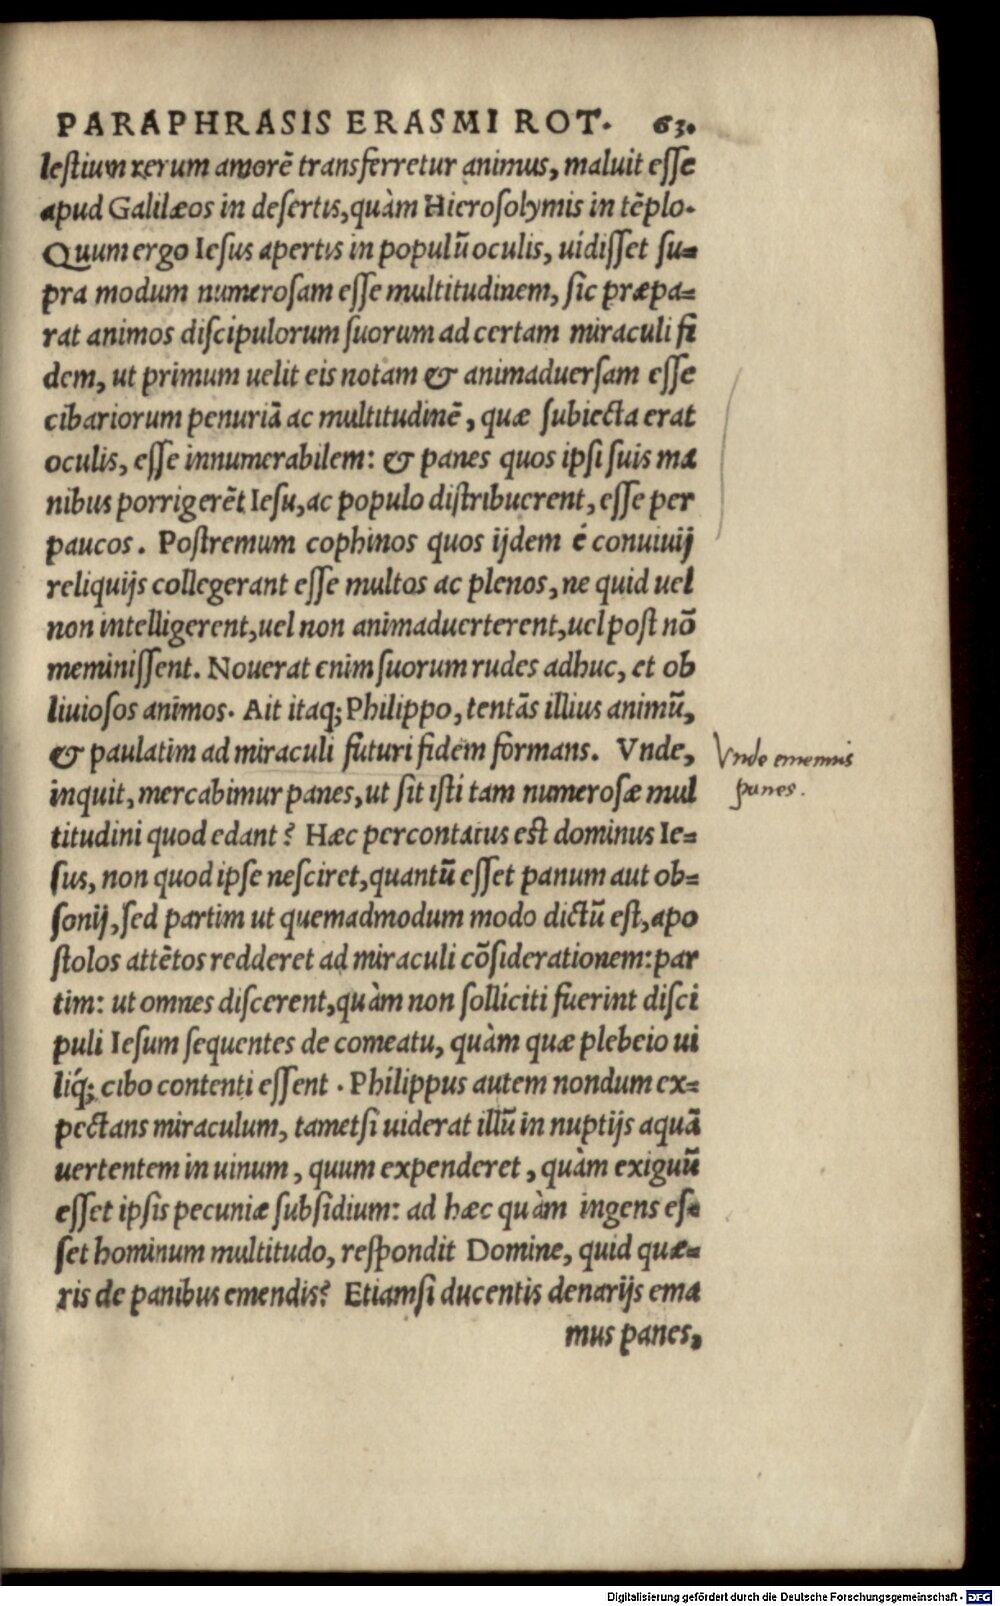 PARAPHRASIS ERASMI ROT. 63.
lestium rerum amorē transferretur animus, maluit esse
apud Galilæos in desertis, quàm Hierosolymis in tēplo.
Quum ergo Iesus apertis in populū oculis, uidisset su=
pra modum numerosam esse multitudinem, sic præpa=
rat animos discipulorum suorum ad certam miraculi fi
dem, ut primum uelit eis notam & animaduersam esse
cibariorum penuriā ac multitudinē, quæ subiecta erat
oculis, esse innumerabilem: & panes quos ipsi suis ma
nibus porrigerēt Iesu, ac populo distribuerent, esse per
paucos. Postremum cophinos quos ijdem é conuiuij
reliquijs collegerant esse multos ac plenos, ne quid uel
non intelligerent, uel non animaduerterent, uel post nō
meminissent. Nouerat enim suorum rudes adhuc, et ob
liuiosos animos. Ait itaq; Philippo, tentās illius animū,
& paulatim ad miraculi futuri fidem formans. Vnde,
Vnde ememus
panes.
inquit, mercabimur panes, ut sit isti tam numerosæ mul
titudini quod edant? Hæc percontatus est dominus Ie=
sus, non quod ipse nesciret, quantū esset panum aut ob=
sonij, sed partim ut quemadmodum modo dictū est, apo
stolos attētos redderet ad miraculi cōsiderationem: par
tim: ut omnes discerent, quàm non solliciti fuerint disci
puli Iesum sequentes de comeatu, quàm quæ plebeio ui
liq́; cibo contenti essent. Philippus autem nondum ex=
pectans miraculum, tametsi uiderat illū in nuptijs aquā
uertentem in uinum, quum expenderet, quàm exiguū
esset ipsis pecuniæ subsidium: ad hæc quàm ingens es=
set hominum multitudo, respondit Domine, quid quæ=
ris de panibus emendis? Etiamsi ducentis denarijs ema
mus panes,
Digitalisierung gefördert durch die Deutsche Forschungsgemeinschaft - DFG